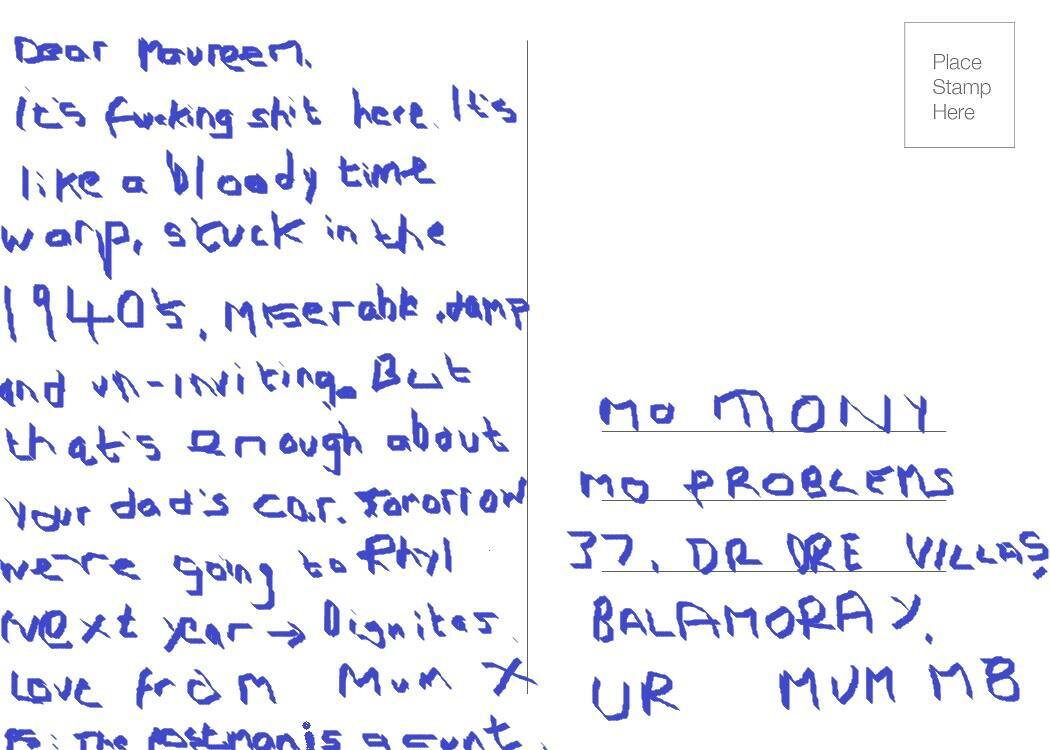 Dear Maureen,
It's fucking shit here. It's
like a bloody time
warp, stuck in the
1940's, miserable, damp
and un-inviting. But
that's enough about
your dad's car. Tomorrow
we're going to Rhyl
Next year → Dignitas.
Love from Mum X
PS: The postman is a cunt.
Place
Stamp
Here
MO MONY
MO PROBLEMS
37, DR DRE VILLAS,
BALAMORAY,
UR MUM M8